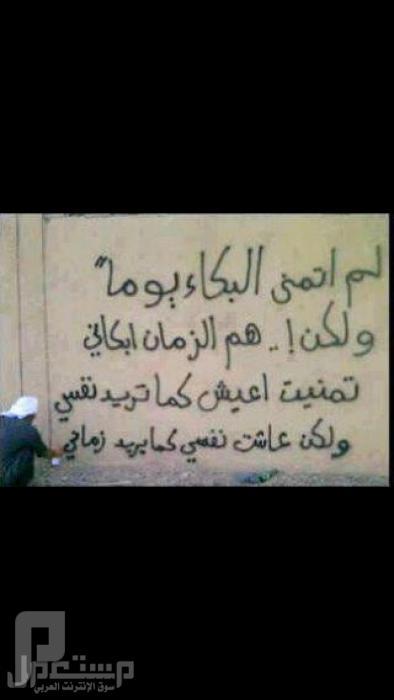 لم اتمنى البكاء يوماً
ولكن !.. هم الزمان ابكاني
تمنيت اعيش كما تريد نفسي
ولكن عاشت نفسي كما يريد زماني
مستعمل
سوق الإنترنت العربي